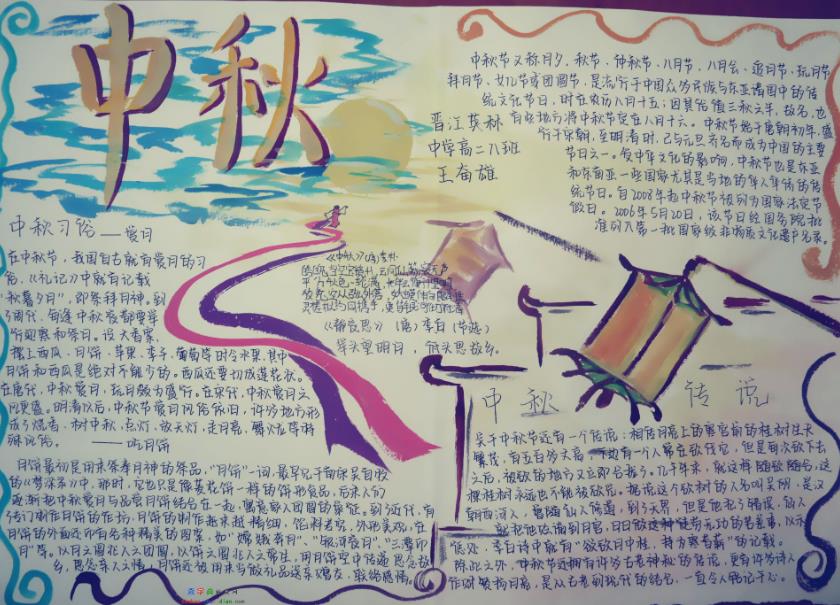 中秋
中秋节又称月夕、秋节、仲秋节、八月节、八月会、追月节、玩月节
拜月节、女儿节或团圆节，是流行于中国众多民族与东亚诸国中的传
统文化节日，时在农历八月十五；因其恰值三秋之半，故名，也
有些地方将中秋节定在八月十六。中秋节始于唐朝初年，盛
行于宋朝，至明清时，已与元旦齐名而成为中国的主要
节日之一。受中华文化的影响，中秋节也是东亚
和东南亚一些国家尤其是当地的华人华侨的传
统节日。自2008年起中秋节被列为国家法定节
假日。2006年5月20日，该节日经国务院批
准列入第一批国家级非物质文化遗产名录。
晋江英林
中学高二八班
王奋雄
中秋习俗——赏月
在中秋节，我国自古就有赏月的习
俗，《礼记》中就有记载
“秋暮夕月”，即祭拜月神。到
了周代，每逢中秋夜都要举
行迎寒和祭月。设大香案，
摆上西瓜、月饼、苹果、李子、葡萄等时令水果，其中
月饼和西瓜是绝对不能少的。西瓜还要切成莲花状。
在唐代，中秋赏月，玩月颇为盛行。在宋代，中秋赏月之
风更盛。明清以后，中秋节赏月风俗依旧，许多地方形
成了烧斗香、树中秋、点灯、放天灯、走月亮、舞火龙等特
殊风俗。——吃月饼
月饼最初是用来祭奉月神的祭品，“月饼”一词，最早见于南宋吴自牧
的《梦粱录》中，那时，它也只是像菱花饼一样的饼形食品，后来人们
逐渐把中秋赏月与品尝月饼结合在一起，寓意家人团圆的象征。到了近代，有
专门制作月饼的作坊，月饼的制作越来越精细，馅料考究，外形美观，在
月饼的外面还印有各种精美的图案，如“嫦娥奔月”、“银河夜月”、“三潭印
月”等。以月之圆兆人之团圆，以饼之圆兆人之常生，用月饼寄托思念故
乡，思念亲人之情，月饼还被用来当做礼品送亲赠友，联络感情。
《静夜思》（唐）李白
举头望明月，低头思故乡。
中秋传说
关于中秋节还有一个传说：相传月亮上的广寒宫前的桂树生长
繁茂，有五百多丈高，下边有一个人常在砍伐它，但是每次砍下去
之后，被砍的地方又立即合拢了。几千年来，就这样随砍随合，这
棵桂树永远也不能被砍光。据说这个砍树的人名叫吴刚，是汉
朝西河人，曾跟随仙人修道，到了天界，但是他犯了错误，仙人
就把他贬谪到月宫，日日做这种徒劳无功的苦差事，以示
惩处。李白诗中就有“欲斫月中桂，持为寒者薪”的记载。
除此之外，中秋节还拥有许多古老神秘的传说，更有许多诗人